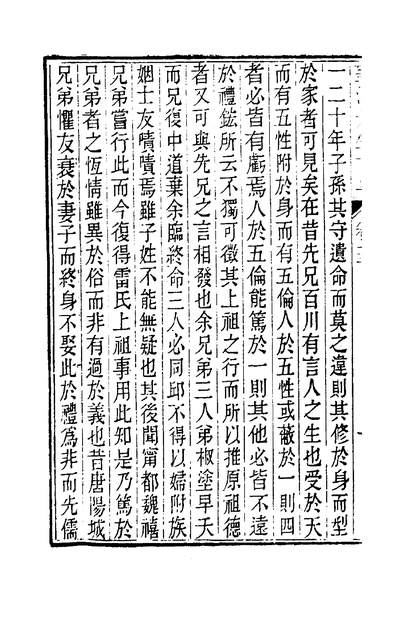 一二十年子孫其守遺命而莫之違則其修於身而型
於家者可見矣在昔先兄百川有言人之生也受於天
而有五性附於身而有五倫人於五性或蔽於一則四
者必皆有虧焉人於五倫能篤於一則其他必皆不遠
於禮鋐所云不獨可徵其上祖之行而所以推原祖德
者又可與先兄之言相發也余兄弟三人弟椒塗早夭
而兄復中道棄余臨終命三人必同邱不得以婦附族
姻士友嘖嘖焉雖子姓不能無疑也其後聞甯都魏禧
兄弟嘗行此而今復得雷氏上祖事用此知是乃篤於
兄弟者之恆情雖異於俗而非有過於義也昔唐陽城
兄弟懼友衰於妻子而終身不娶此於禮爲非而先儒